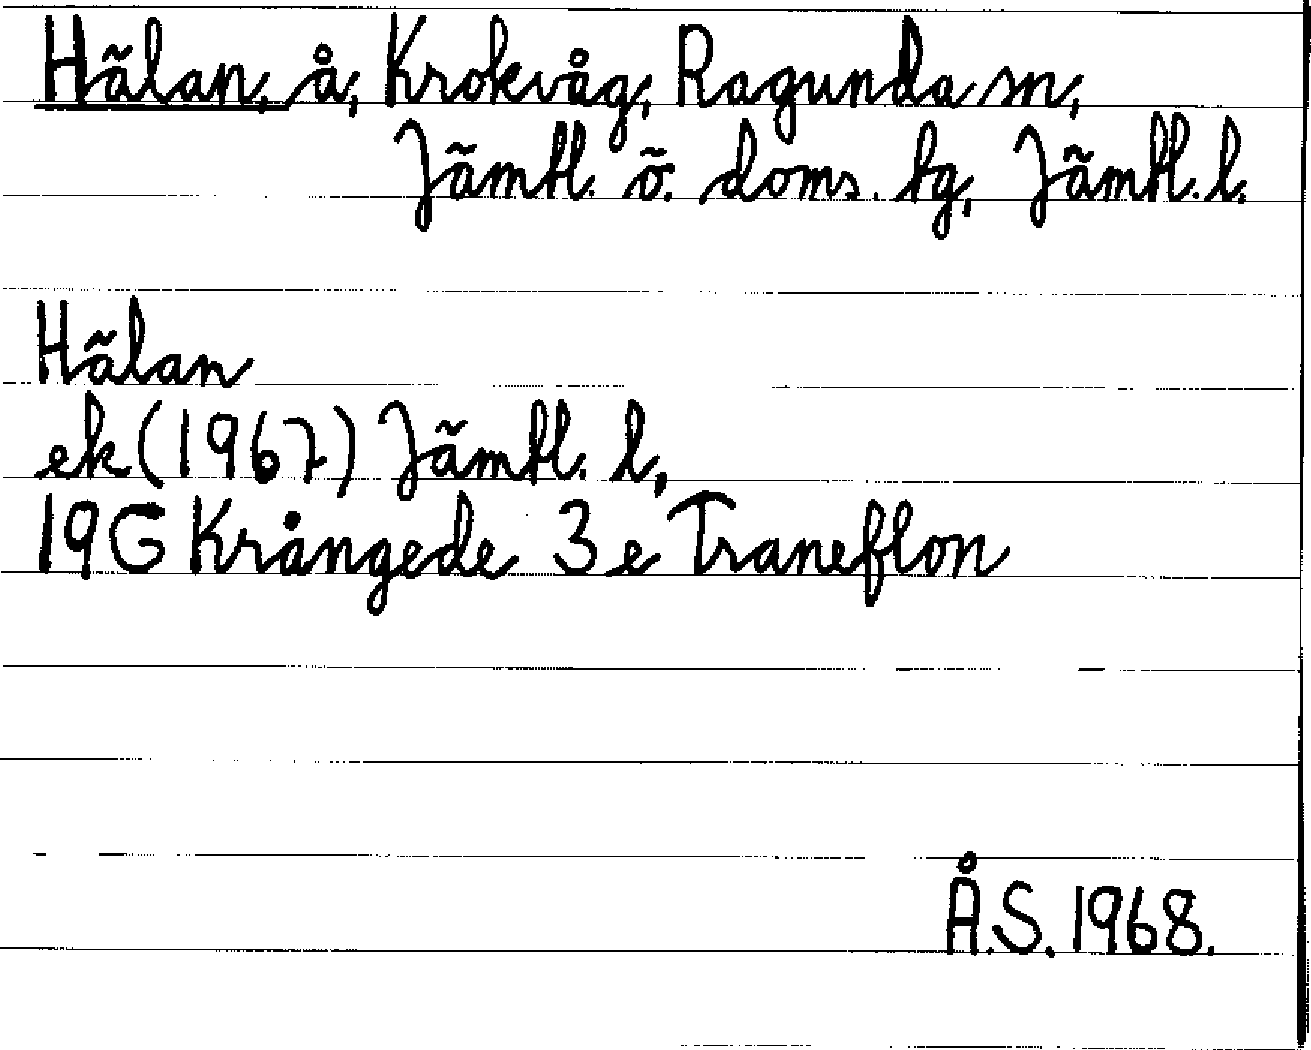 Hälan, å, Krokvåg, Ragunda sn,
Jämtl. ö. doms. tg, Jämtl. l.
Hälan
ek (1967) Jämtl. l,
19G Krångede 3e Traneflon
Å.S. 1968.